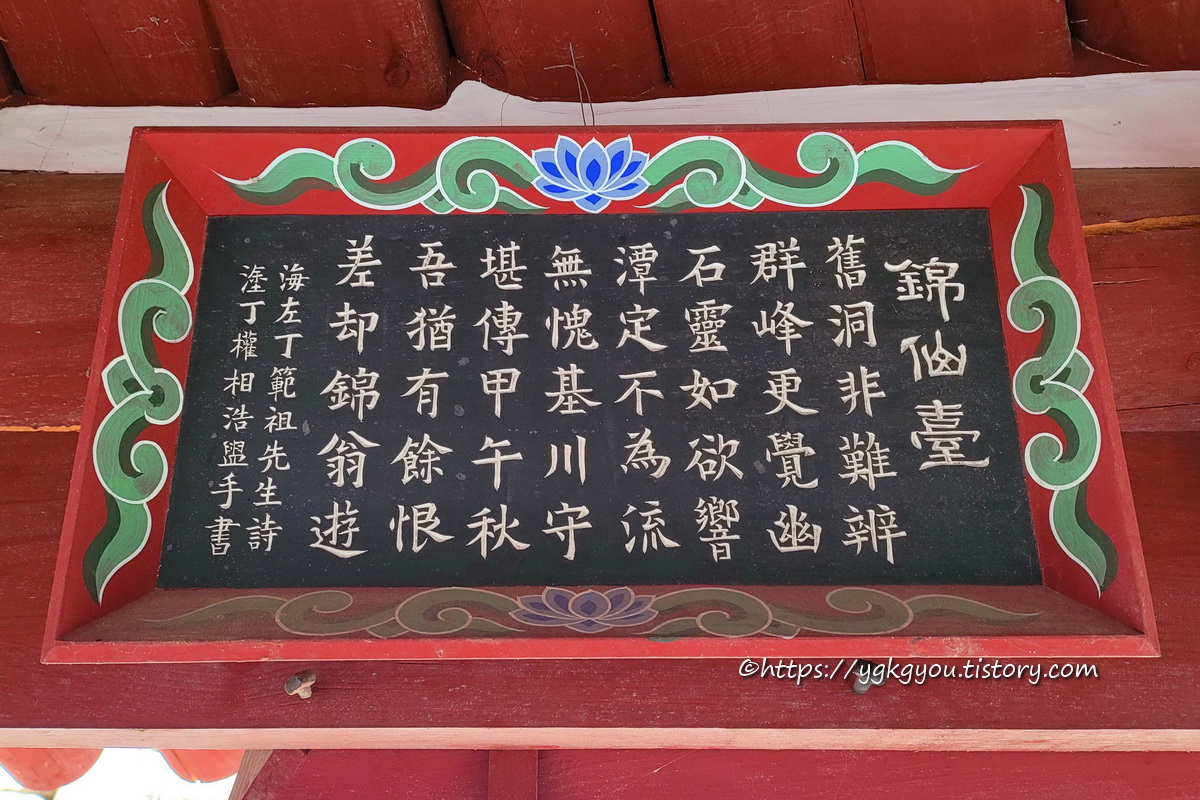 錦仙臺
舊洞非難辨
群峰更覺幽
石靈如欲響
潭定不為流
無愧基川守
堪傳甲午秋
吾猶有餘恨
差却錦翁遊
海左丁範祖先生詩
塗丁權相浩盥手書
©https://ygkgyou.tistory.com